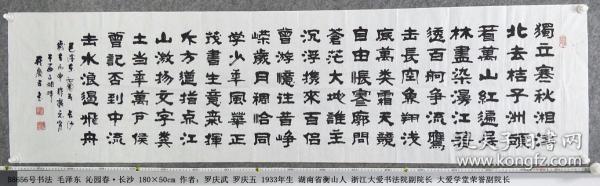 獨立寒秋湘江
北去桔子洲頭
看萬山紅遍层
林盡染漫江碧
透百舸争流鷹
击長空魚翔浅
底萬类霜天競
自由悵寥廓問
苍茫大地誰主
沉浮携来百侣
曾游憶往昔峥
嵘歲月稠恰同
学少年風華正
茂書生意氣揮
斥方遒指点江
山激扬文字糞
土当年萬户侯
曾記否到中流
击水浪遏飛舟
88656号书法 毛泽东 沁园春·长沙 180×50cm 作者：罗庆武 罗庆五 1933年生 湖南省衡山人 浙江大爱书法院副院长 大爱学堂荣誉副院长